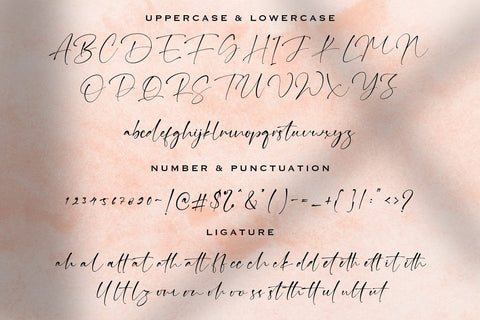 UPPERCASE & LOWERCASE
A B C D E F G H I J K L M N
O P Q R S T U V W X Y Z
abcdefghijklmnopqrstuvwxyz
NUMBER & PUNCTUATION
1234567890-!@#$%^&*()-=_+{}|:"<>?
LIGATURE
ah al alt at ath att ff ee ch ck dd et eth ett it ith
ll lt lz om on oh oo ss st th tt ul ult ut